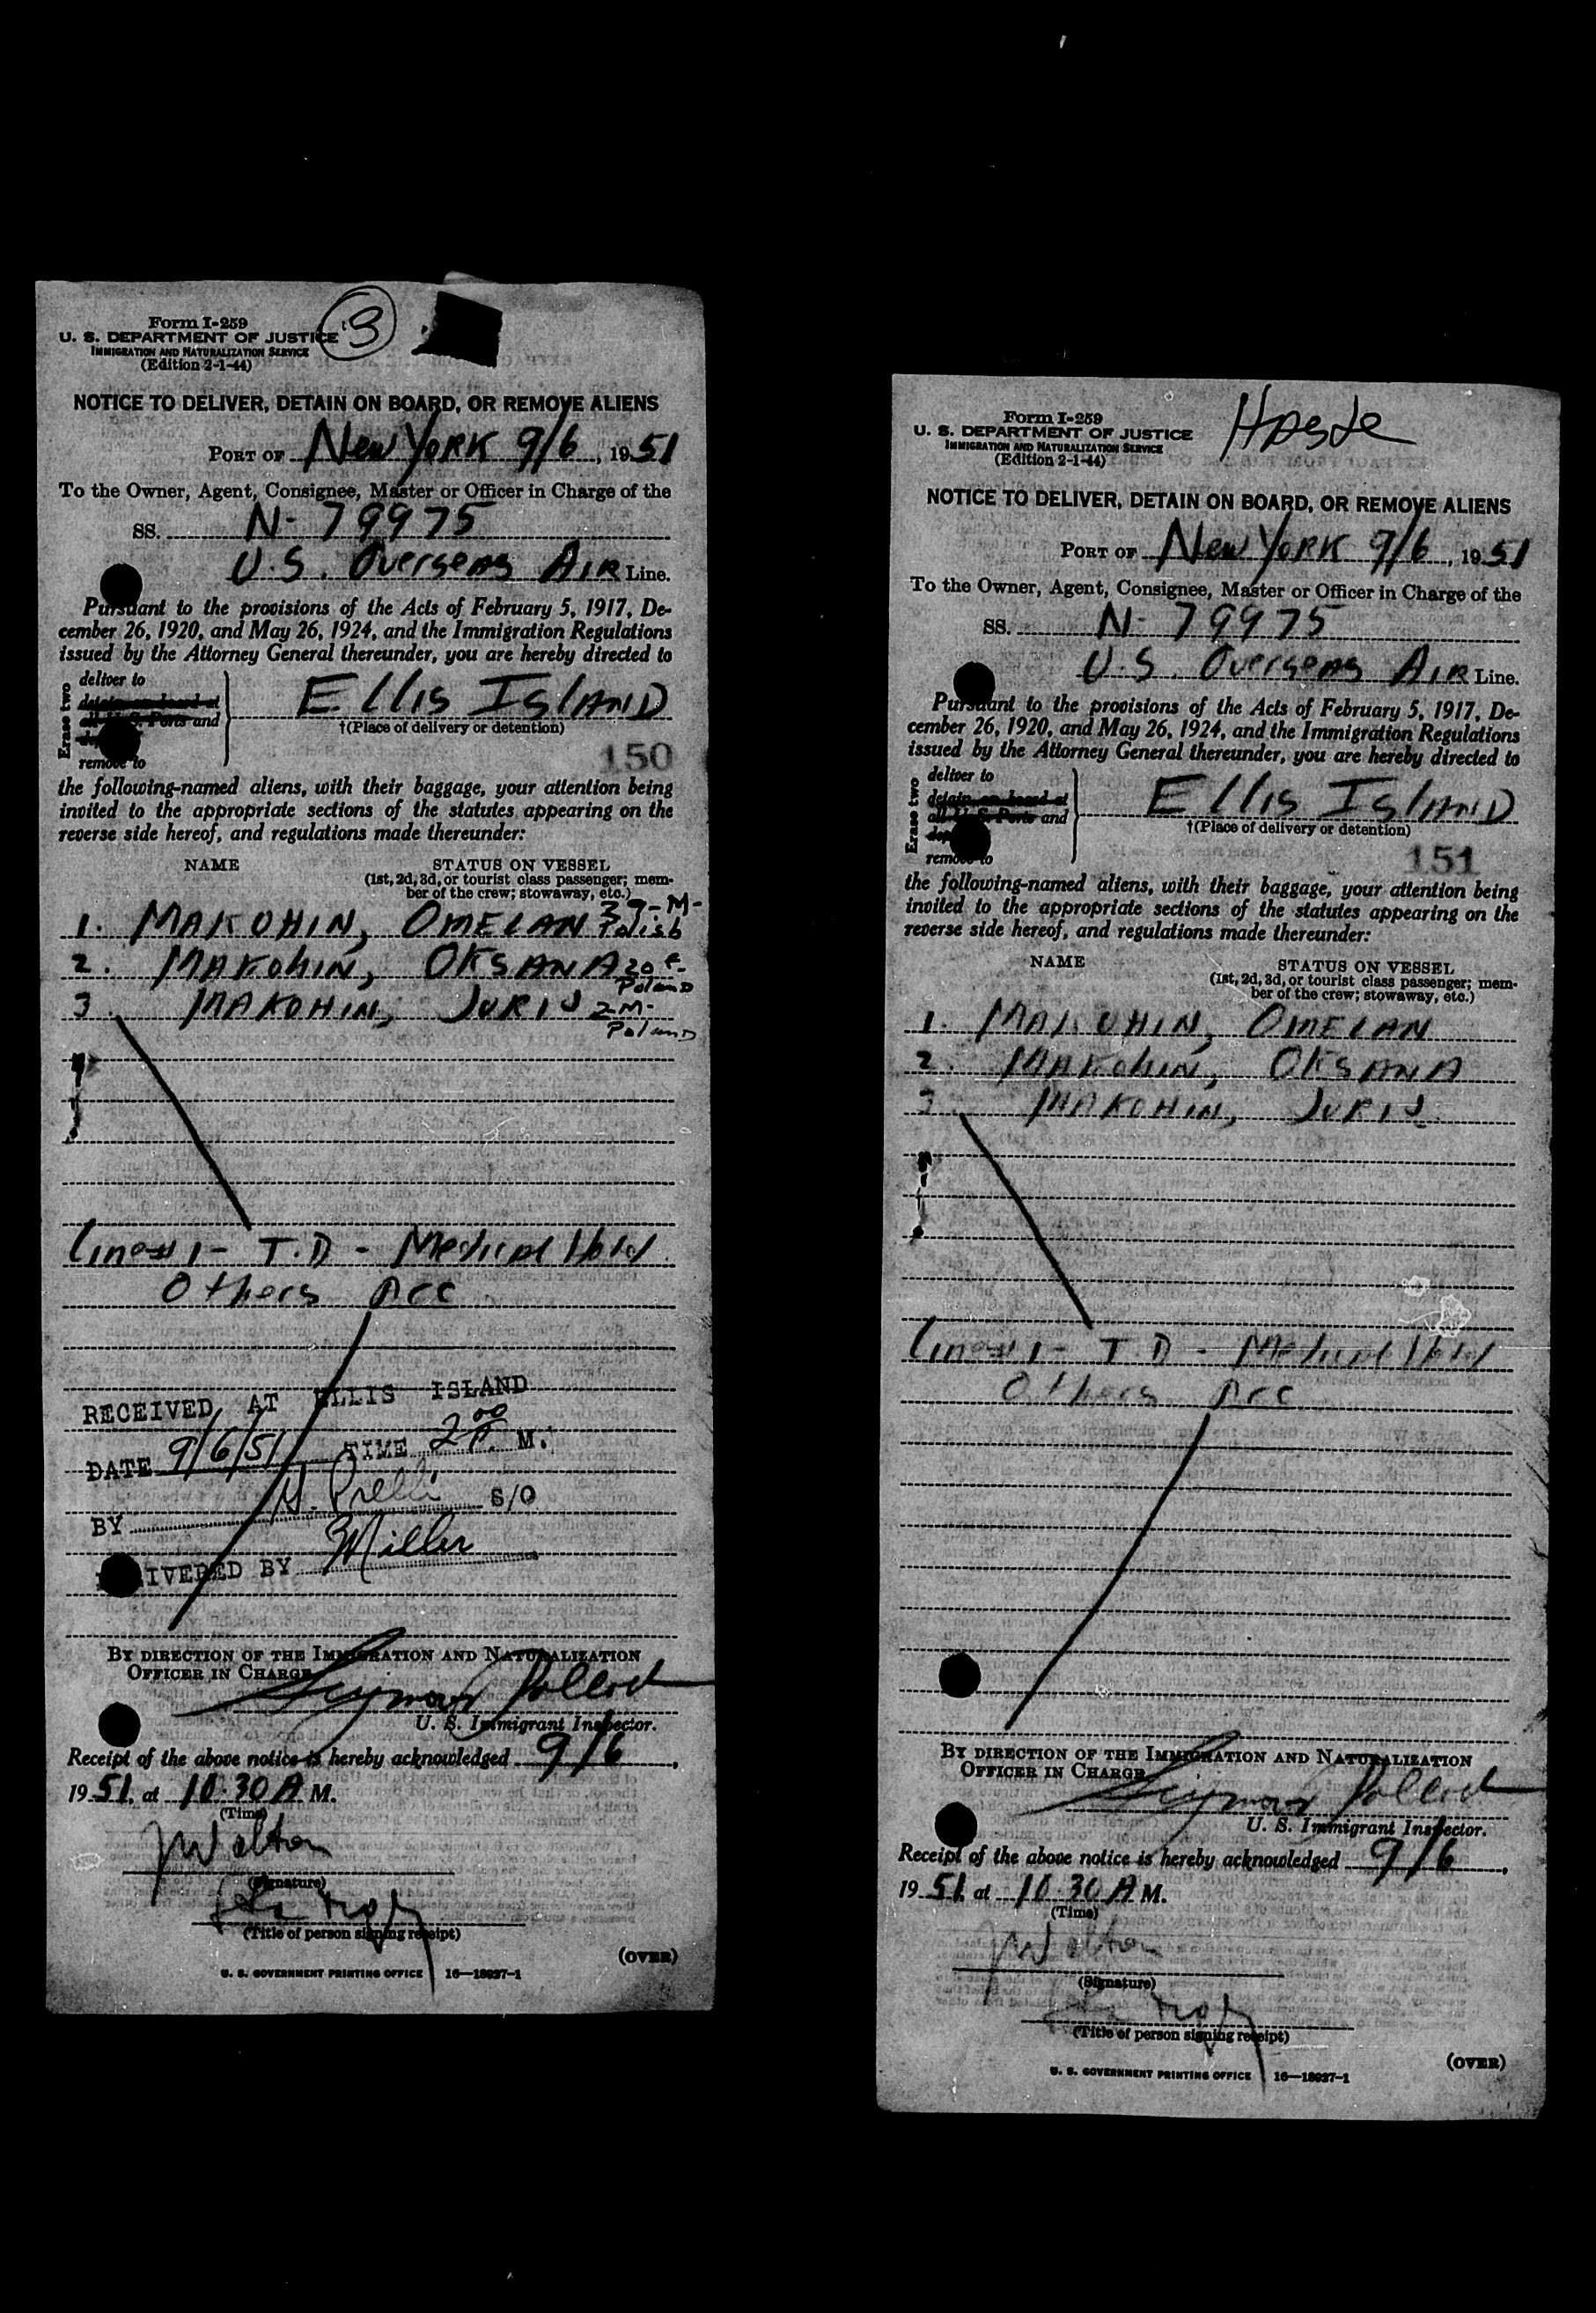 Form I-259
U. S. DEPARTMENT OF JUSTICE
IMMIGRATION AND NATURALIZATION SERVICE
(Edition 2-1-44)
3
NOTICE TO DELIVER, DETAIN ON BOARD, OR REMOVE ALIENS
PORT OF New York 9/6, 1951
To the Owner, Agent, Consignee, Master or Officer in Charge of the
SS. N-79975
U.S. Overseas Air Line.
Pursuant to the provisions of the Acts of February 5, 1917, De-
cember 26, 1920, and May 26, 1924, and the Immigration Regulations
issued by the Attorney General thereunder, you are hereby directed to
Erase two
deliver to
detain on board at
all U. S. Ports and
remove to
Ellis Island
†(Place of delivery or detention)
150
the following-named aliens, with their baggage, your attention being
invited to the appropriate sections of the statutes appearing on the
reverse side hereof, and regulations made thereunder:
NAME STATUS ON VESSEL
(1st, 2d, 3d, or tourist class passenger; mem-
ber of the crew; stowaway, etc.)
1. MAKOHIN, OMELAN 39-M-
Polish
2. MAKOHIN, OKSANA 20 F-
Poland
3. MAKOHIN, JURIJ 2M-
Poland
Line #1- T.D - Medical Hold
Others Acc
RECEIVED AT ELLIS ISLAND
DATE 9/6/51 TIME 2 00 P. M.
BY S/O
DELIVERED BY Miller
BY DIRECTION OF THE IMMIGRATION AND NATURALIZATION
OFFICER IN CHARGE
Seymour Pollock
U. S. Immigrant Inspector.
Receipt of the above notice is hereby acknowledged 9/6,
1951, at 10:30 A M.
(Time)
J Walton
(Signature)
(Title of person signing receipt)
(OVER)
U. S. GOVERNMENT PRINTING OFFICE 16—18027-1
Form I-259
U. S. DEPARTMENT OF JUSTICE
IMMIGRATION AND NATURALIZATION SERVICE
(Edition 2-1-44)
NOTICE TO DELIVER, DETAIN ON BOARD, OR REMOVE ALIENS
PORT OF New York 9/6, 1951
To the Owner, Agent, Consignee, Master or Officer in Charge of the
SS. N-79975
U.S. Overseas Air Line.
Pursuant to the provisions of the Acts of February 5, 1917, De-
cember 26, 1920, and May 26, 1924, and the Immigration Regulations
issued by the Attorney General thereunder, you are hereby directed to
Erase two
deliver to
detain on board at
all U. S. Ports and
remove to
Ellis Island
†(Place of delivery or detention)
151
the following-named aliens, with their baggage, your attention being
invited to the appropriate sections of the statutes appearing on the
reverse side hereof, and regulations made thereunder:
NAME STATUS ON VESSEL
(1st, 2d, 3d, or tourist class passenger; mem-
ber of the crew; stowaway, etc.)
1. MAKOHIN, OMELAN
2. MAKOHIN, OKSANA
3 MAKOHIN, JURIJ
Line #1- T.D - Medical Hold
Others Acc
BY DIRECTION OF THE IMMIGRATION AND NATURALIZATION
OFFICER IN CHARGE
Seymour Pollock
U. S. Immigrant Inspector.
Receipt of the above notice is hereby acknowledged 9/6,
1951, at 10 30 A M.
(Time)
J Walton
(Signature)
(Title of person signing receipt)
(OVER)
U. S. GOVERNMENT PRINTING OFFICE 16—18027-1